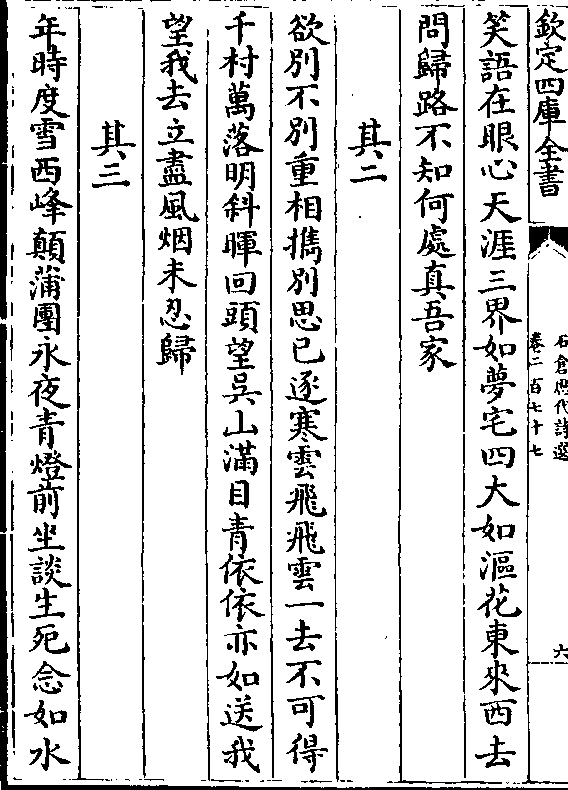 欽定四庫全書
石倉歷代詩選
卷二百七十七
六
笑語在眼心天涯三界如夢宅四大如漚花東來西去
問歸路不知何處真吾家
其二
欲別不別重相攜別思已逐寒雲飛飛雲一去不可得
千村萬落明斜暉回頭望吳山滿目青依依亦如送我
望我去立盡風烟未忍歸
其三
年時度雪西峰顛蒲團永夜青燈前坐談生死念如水